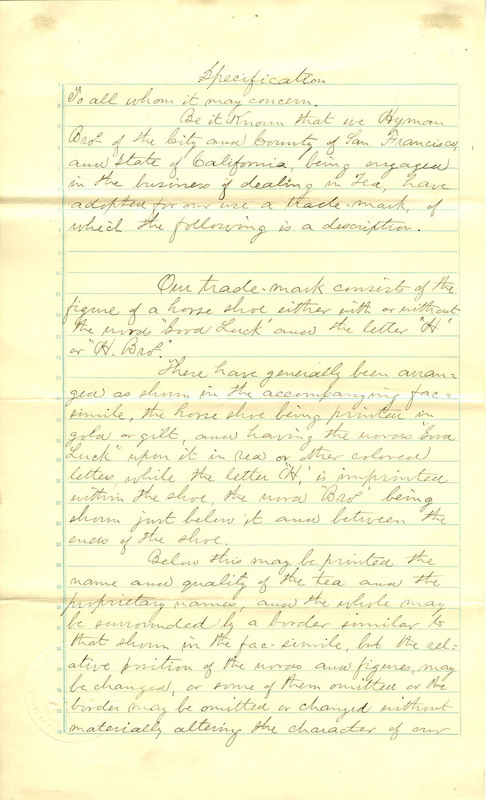 Specification
To all whom it may concern.
Be it Known that we Hyman
Bros. of the City and County of San Francisco,
and State of California, being engaged
in the business of dealing in Tea, have
adopted for our use a trade-mark, of
which the following is a description.
Our trade-mark consists of the
figure of a horse shoe either with or without
the word "Good Luck" and the letter "H"
or "H. Bros."
These have generally been arran-
ged as shown in the accompanying fac-
simile, the horse shoe being printed in
gold or gilt, and having the words "Good
Luck" upon it in red or other colored
letters, while the letter "H," is imprinted
within the shoe, the word "Bros" being
shown just below it and between the
ends of the shoe.
Below this may be printed the
name and quality of the tea and the
proprietary names, and the whole may
be surrounded by a border similar to
that shown in the fac-simile, but the rel-
ative position of the words and figures, may
be changed, or some of them omitted or the
border may be omitted or changed without
materially altering the character of our